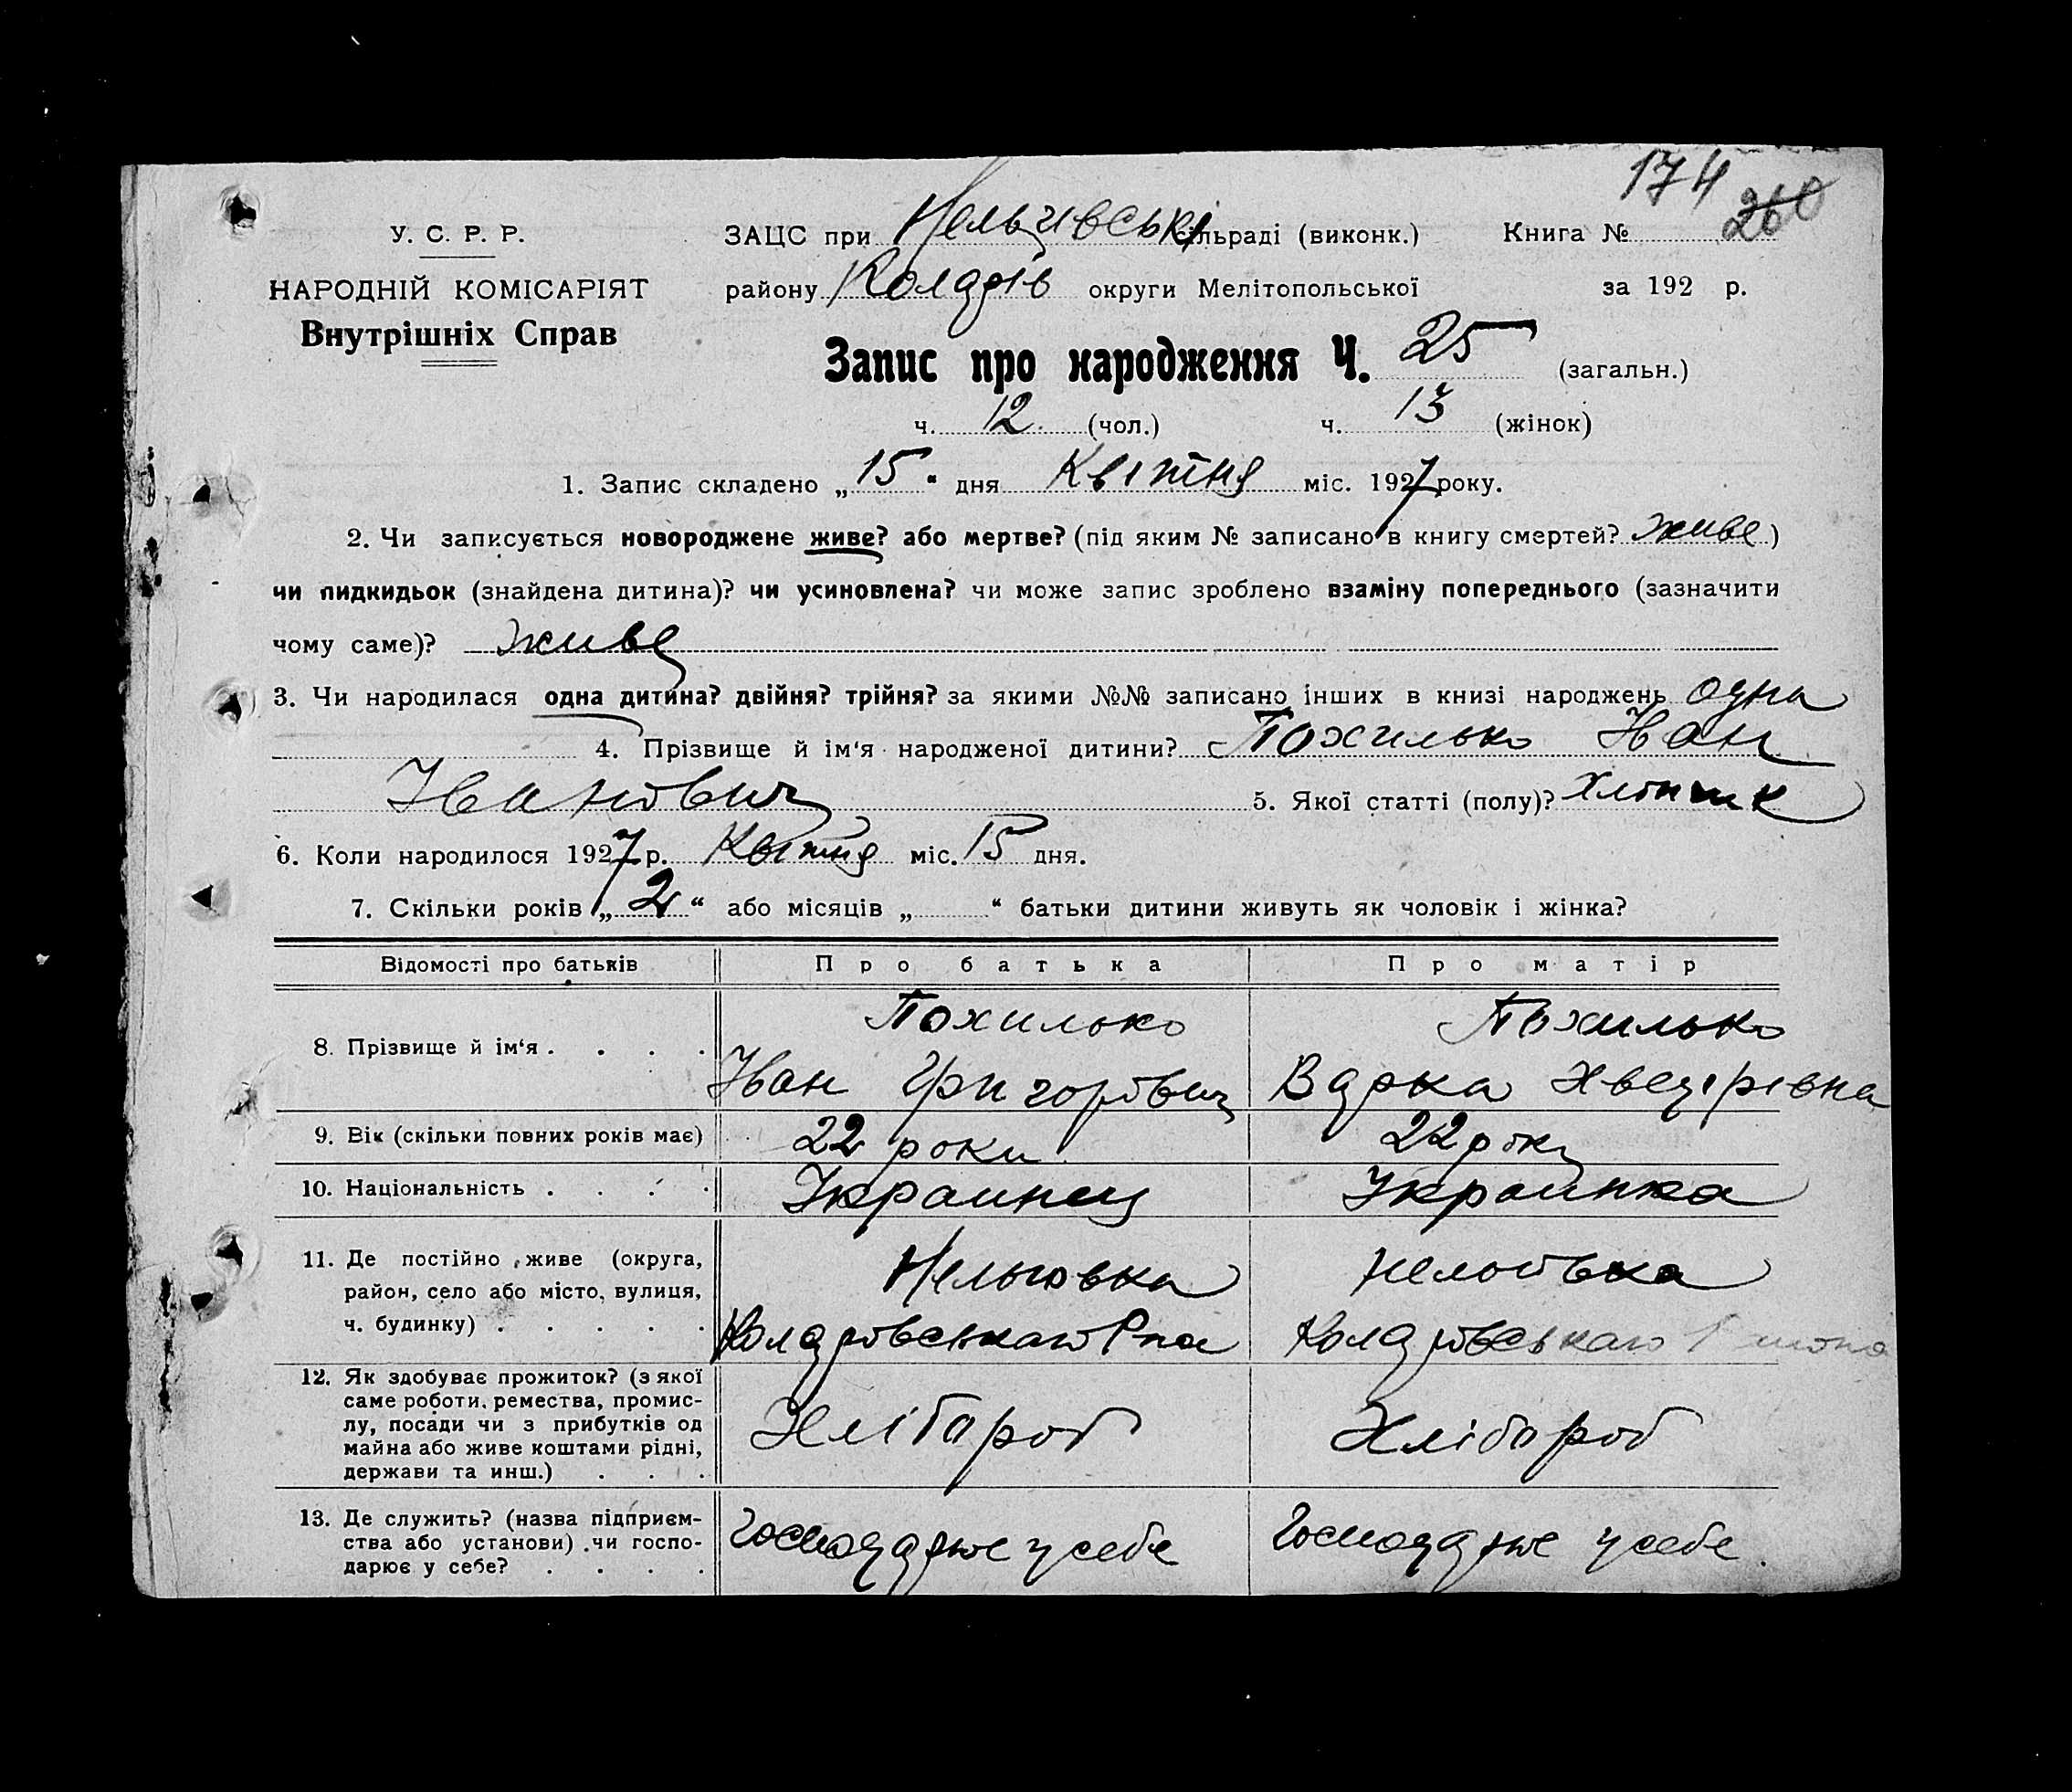 174 260
У. С. Р. Р.
НАРОДНІЙ КОМІСАРІЯТ
Внутрішніх Справ
ЗАЦС при Нельгивські сільраді (виконк.) Книга №
району Колдрів округи Мелітопольської за 192 р.
Запис про народження Ч. 25 (загальн.)
ч. 12 (чол.) ч. 13 (жінок)
1. Запис складено „15“ дня Квітня міс. 1927 року.
2. Чи записується новороджене живе? або мертве? (під яким № записано в книгу смертей? живе)
чи пидкидьок (знайдена дитина)? чи усиновлена? чи може запис зроблено взаміну попереднього (зазначити
чому саме)? живе
3. Чи народилася одна дитина? двійня? трійня? за якими №№ записано інших в книзі народжень одна
4. Прізвище й ім‘я народженої дитини? Похилько Иван
Иванович 5. Якої статті (полу)? хлопчик
6. Коли народилося 1927 р. Квітня міс. 15 дня.
7. Скільки років „2“ або місяців „ “ батьки дитини живуть як чоловік і жінка?
Відомості про батьків Про батька Про матір
8. Прізвище й ім‘я . . . . Похилько Похилько
Иван Григорович Варка Хведірівна
9. Вік (скільки повних років має) 22 роки 22 роки
10. Національність . . . . Украинец Украинка
11. Де постійно живе (округа, Нельговка Нельговка
район, село або місто, вулиця,
ч. будинку) . . . . . Колдровськаго Рна Колдровськаго
12. Як здобуває прожиток? (з якої
саме роботи, ремества, промис-
лу, посади чи з прибутків од Хлібароб Хлібароб
майна або живе коштами рідні,
держави та инш.) . . .
13. Де служить? (назва підприєм-
ства або установи) чи госпо- Господарює у себе Господарює у себе.
дарює у себе? . . . .